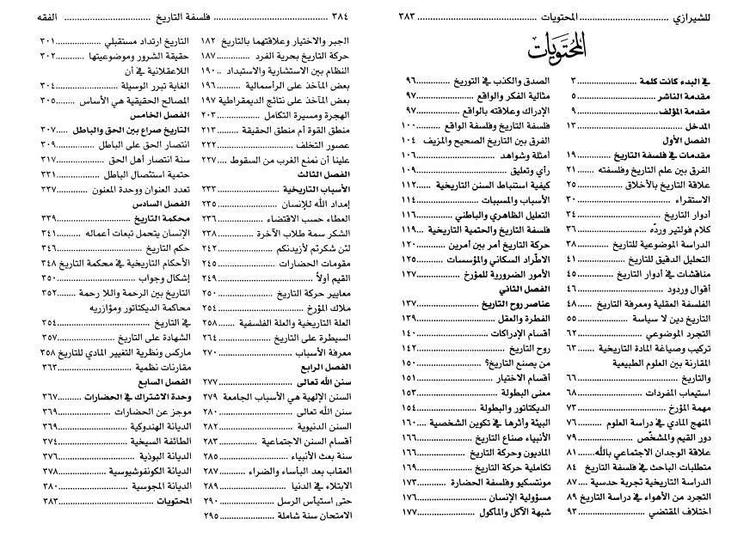 للشيرازي ........ المحتويات ........ ٣٨٣
المحتويات
في البدء كانت كلمة ........ ٣
مقدمة الناشر ........ ٥
مقدمة المؤلف ........ ٩
المدخل ........ ١٣
الفصل الأول
مقدمات في فلسفة التاريخ ........ ١٩
الفرق بين علم التاريخ وفلسفته ........ ٢١
علاقة التاريخ بالأخلاق ........ ٢٥
الاستقراء ........ ٣٠
أدوار التاريخ ........ ٣٤
كلام فولتير وردّه ........ ٣٦
الدراسة الموضوعية للتاريخ ........ ٣٨
التحليل الدقيق للتاريخ ........ ٤١
مناقشات في أدوار التاريخ ........ ٤٥
أقوال وردود ........ ٤٦
الفلسفة العقلية ومعرفة التاريخ ........ ٤٨
التاريخ دين لا سياسة ........ ٥٥
التجرد الموضوعي ........ ٦٢
تركيب وصياغة المادة التاريخية ........ ٦٣
المقارنة بين العلوم الطبيعية
والتاريخ ........ ٦٦
استيعاب المفردات ........ ٦٨
مهمة المؤرخ ........ ٧٣
المنهج المادي في دراسة العلوم ........ ٧٦
دور القيم والمشخّص ........ ٧٩
علاقة الوجدان الاجتماعي بالله ........ ٨١
متطلبات الباحث في فلسفة التاريخ ........ ٨٤
الدراسة التاريخية تجربة حدسية ........ ٨٧
التجرد من الأهواء في دراسة التاريخ ٨٩
اختلاف المقتضي ........ ٩٣
الصدق والكذب في التوريخ ........ ٩٦
مثالية الفكر والواقع ........ ٩٧
الإدراك وعلاقته بالواقع ........ ٩٧
فلسفة التاريخ وفلسفة الواقع ........ ١٠٠
الفرق بين التاريخ الصحيح والمزيف ١٠٤
أمثلة وشواهد ........ ١٠٦
رأي وتعليق ........ ١٠٩
كيفية استنباط السنن التاريخية ........ ١١٢
الأسباب والمسببات ........ ١١٤
التعليل الظاهري والباطني ........ ١١٦
فلسفة التاريخ والحتمية التاريخية ........ ١١٩
حركة التاريخ أمر بين أمرين ........ ١٢٠
الاطّراد السكاني والمؤسسات ........ ١٢٥
الأمور الضرورية للمؤرخ ........ ١٢٧
الفصل الثاني
عناصر روح التاريخ ........ ١٣٧
الفطرة والعقل ........ ١٣٩
أقسام الإدراكات ........ ١٤٠
روح التاريخ ........ ١٤٢
من يصنع التاريخ؟ ........ ١٥٠
أقسام الاختيار ........ ١٥١
معنى البطولة ........ ١٥٣
الديكتاتور والبطولة ........ ١٥٤
البيئة وأثرها في تكوين الشخصية ........ ١٦٠
الأنبياء صناع التاريخ ........ ١٦٦
الماديون وحركة التاريخ ........ ١٦٦
تكاملية حركة التاريخ ........ ١٦٩
مونتسكيو وفلسفة الحضارة ........ ١٧٣
مسؤولية الإنسان ........ ١٧٦
شبهة الآكل والمأكول ........ ١٧٧
٣٨٤ ........ فلسفة التاريخ ........ الفقه
الجبر والاختيار وعلاقتهما بالتاريخ ١٨٢
حركة التاريخ بحرية الفرد ........ ١٨٧
النظام بين الاستشارية والاستبداد ........ ١٩٠
بعض المآخذ على الرأسمالية ........ ١٩٦
بعض المآخذ على نتائج الديمقراطية ١٩٧
الهجرة ومسيرة التكامل ........ ٢٠٣
منطق القوة أم منطق الحقيقة ........ ٢١٣
عصور التخلف ........ ٢٢٢
علينا أن نمنع الغرب من السقوط ........ ٢٢٧
الفصل الثالث
الأسباب التاريخية ........ ٢٣٣
إمداد الله للإنسان ........ ٢٣٥
العطاء حسب الاقتضاء ........ ٢٣٦
الشكر سمة طلاب الآخرة ........ ٢٣٨
لئن شكرتم لأزيدنكم ........ ٢٤٢
مقومات الحضارات ........ ٢٤٥
القيم أولاً ........ ٢٤٩
معايير حركة التاريخ ........ ٢٥٠
ملاك المؤرخ ........ ٢٥٤
العلة التاريخية والعلة الفلسفية ........ ٢٥٨
السيطرة على التاريخ ........ ٢٦٤
معرفة الأسباب ........ ٢٧٠
الفصل الرابع
سنن الله تعالى ........ ٢٧٧
السنن الإلهية هي الأسباب الجامعة ٢٧٩
سنن الله تعالى ........ ٢٨٠
السنن الدنيوية ........ ٢٨٢
أقسام السنن الاجتماعية ........ ٢٨٣
سنة بعث الأنبياء ........ ٢٨٥
العقاب بعد البأساء والضراء ........ ٢٨٧
الابتلاء في الدنيا ........ ٢٨٩
حتى استيأس الرسل ........ ٢٩٠
الامتحان سنة شاملة ........ ٢٩٥
التاريخ ارتداد مستقبلي ........ ٣٠١
حقيقة الشرور وموضوعيتها ........ ٣٠٢
اللاعقلانية في أن
الغاية تبرر الوسيلة ........ ٣٠٤
المصالح الحقيقية هي الأساس ........ ٣٠٥
الفصل الخامس
التاريخ صراع بين الحق والباطل ........ ٣٠٧
انتصار الحق على الباطل ........ ٣٠٩
سنة انتصار أهل الحق ........ ٣١٧
حتمية استئصال الباطل ........ ٣٣١
تعدد العنوان ووحدة المعنون ........ ٣٣٧
الفصل السادس
محكمة التاريخ ........ ٣٣٩
الإنسان يتحمل تبعات أعماله ........ ٣٤١
حكم التاريخ ........ ٣٤٦
الأحكام التاريخية في محكمة التاريخ ٣٤٨
إشكال وجواب ........ ٣٥٠
التاريخ بين الرحمة واللا رحمة ........ ٣٥٢
محاكمة الديكتاتور ومؤازريه
في التاريخ ........ ٣٥٤
الشهادة على التاريخ ........ ٣٥٧
ماركس ونظرية التغيير المادي للتاريخ ٣٥٨
مقارنات نظمية ........ ٣٦٣
الفصل السابع
وحدة الاشتراك في الحضارات ........ ٣٦٧
موجز عن الحضارات ........ ٣٦٩
الديانة الهندوكية ........ ٣٦٩
الطائفة السيخية ........ ٣٧٤
الديانة البوذية ........ ٣٧٦
الديانة الكونفوشيوسية ........ ٣٧٨
الديانة المجوسية ........ ٣٨٠
المحتويات ........ ٣٨٣